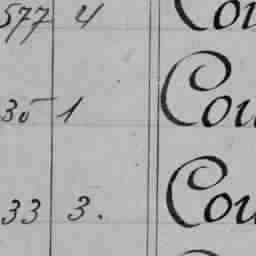 577 4 Cou
35 1 Cou
33 3. Cou